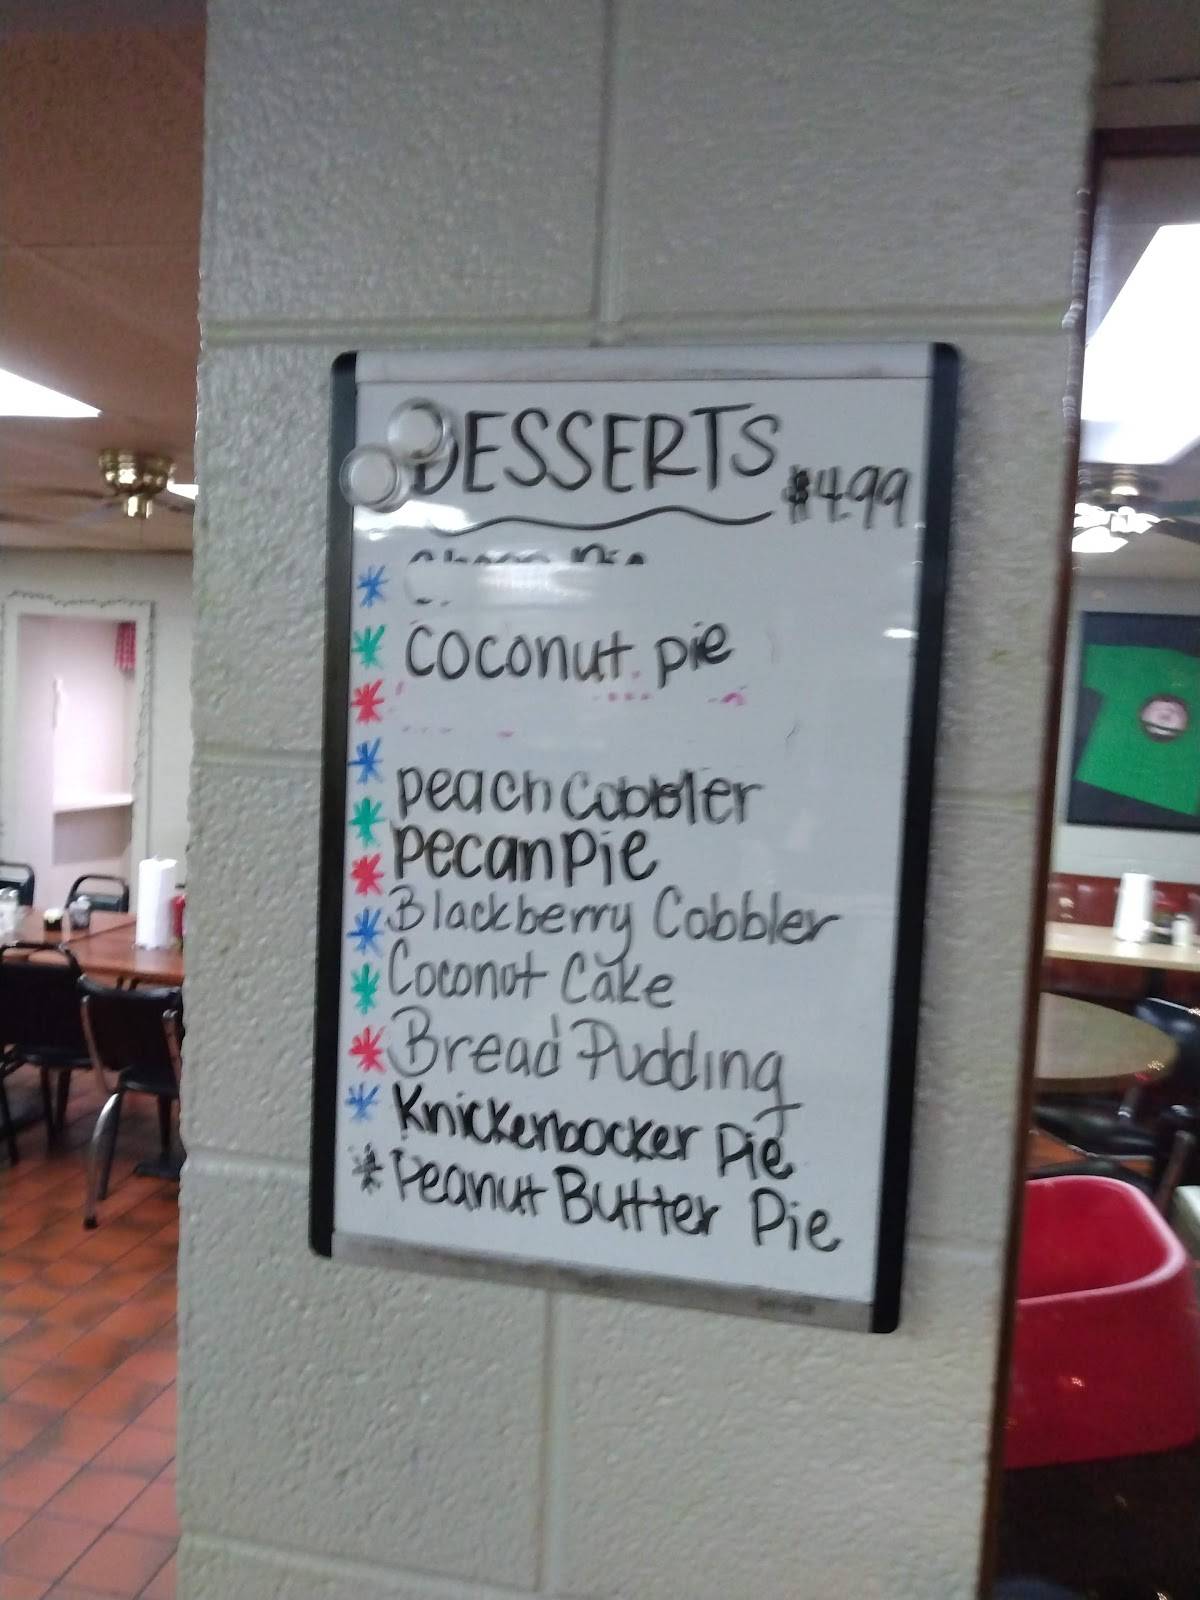 DESSERTS
$4.99
Coconut pie
peach Cobbler
pecan pie
Blackberry Cobbler
Coconot Cake
Bread Pudding
Knickerbocker Pie
Peanut Butter Pie